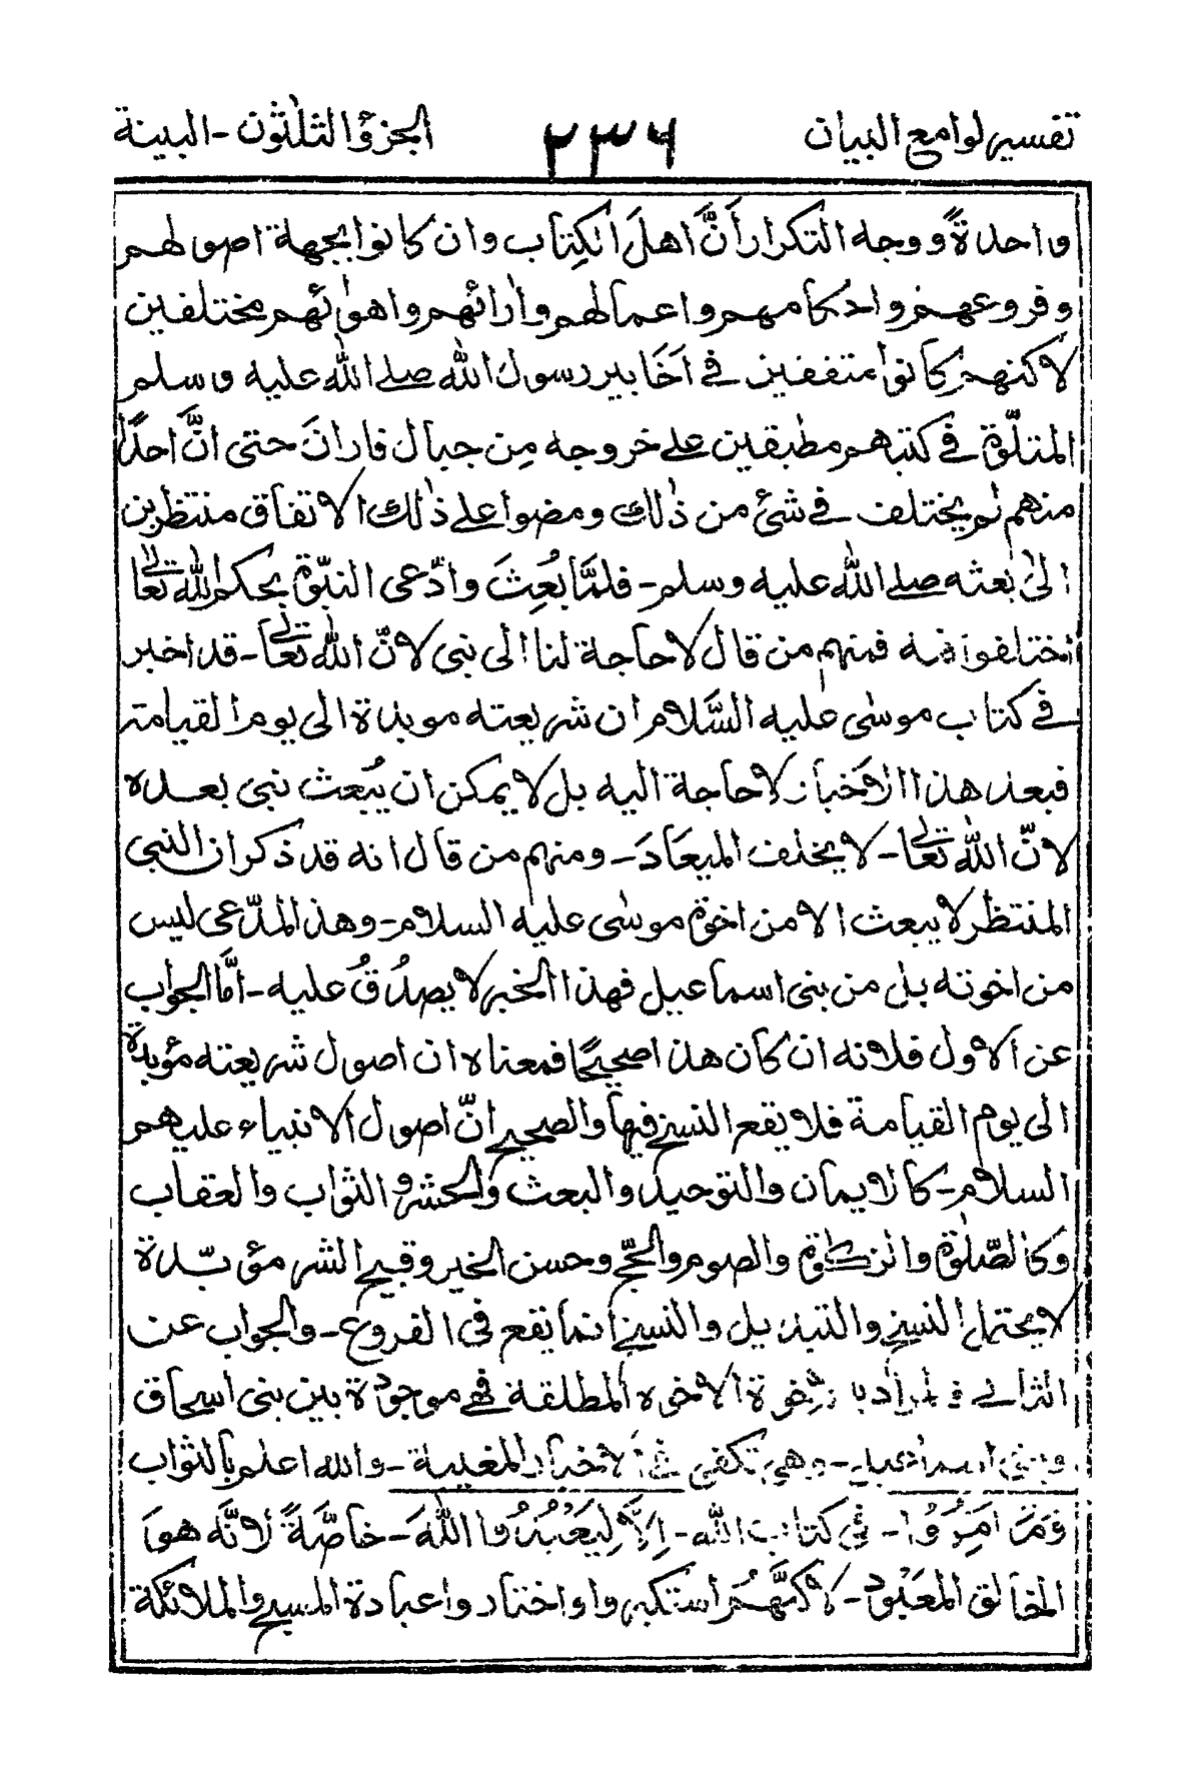 تفسير لوامع البيان ٢٣٦ الجزؤ الثلثون - البينة
واحدةً ووجه التكرار أنَّ اهلَ الكِتاب وان كانوا بجهة اصولهم
وفروعهم واحكامهم واعمالهم واٰرائهم واهوٰئهم مختلفين
لاكنهم كانوا متفقين فے اَخَابير رسول الله صلے الله عليه وسلم
المتلّوة فے كتبهم مطبقين علے خروجه مِن جبال فارانَ حتى انَّ احدًا
منهم لم يختلف فے شئ من ذٰلك ومضوا علے ذٰلك الاتفاق منتظرين
الىٰ بعثه صلے الله عليه وسلم - فلمَّا بُعِثَ وادّعى النبّوة بحكم الله تعالےٰ
اختلفوا فيه فمنهم من قال لا حاجة لنا الى نبى لانّ الله تعالےٰ - قد اخبر
فے كتاب موسٰى عليه السَّلام ان شريعته موبدة الى يوم القيامة
فبعد هذا الاخبار لا حاجة اليه بل لا يمكن ان يُبعث نبى بعده
لانّ الله تعالےٰ - لا يخلف الميعَادَ - ومنهم من قال انه قد ذكر ان النبى
المنتظر لا يبعث الا من اخوة موسٰى عليه السلام - وهذ المدّعى ليس
من اخوته بل من بنى اسماعيل فهذا الخبر لا يصدُقُ عليه - امَّا الجواب
عن الاول فلانه ان كان هذا صحيحًا فمعناه ان اصول شريعته مؤبدة
الى يوم القيامة فلا يقع النسخ فيها والصحيح انّ اصول الانبياء عليهم
السلام - كالايمان والتوحيد والبعث والحشر و الثواب والعقاب
وكالصّلوٰة والزكوٰة والصوم والحجّ وحسن الخير وقبح الشر مؤبّدة
لا يحتمل النسخ والتبديل والنسخ انما يقع فى الفروع - والجواب عن
الثانى فالمراد با لاخوة الاخوه المطلقة فهے موجودة بين بنى اسحاق
وبنى اسماعيل - وهى تكفى فے الاخبار المغيبة - والله اعلم بالثواب
وَمَا اُمِرُوْا - فى كتاب الله - اِلَّا لِيَعْبُدُوا اللهَ - خاصَّةً لانَّه هوَ
الخالق المعَبْود - لاكنَّهُم استكبروا واختاروا عبادة المسيح والملائكة